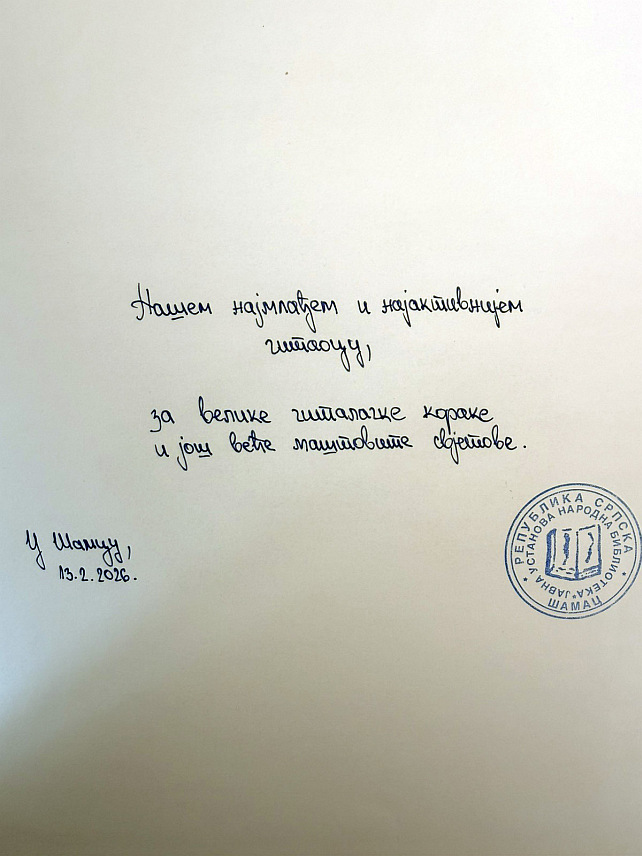 Нашем најмлађем и најактивнијем
читаоцу,
за велике читалачке кораке
и још веће маштовите свјетове.
У Шамцу,
13.2.2026.
РЕПУБЛИКА СРПСКА
ЈАВНА УСТАНОВА НАРОДНА БИБЛИОТЕКА
ШАМАЦ